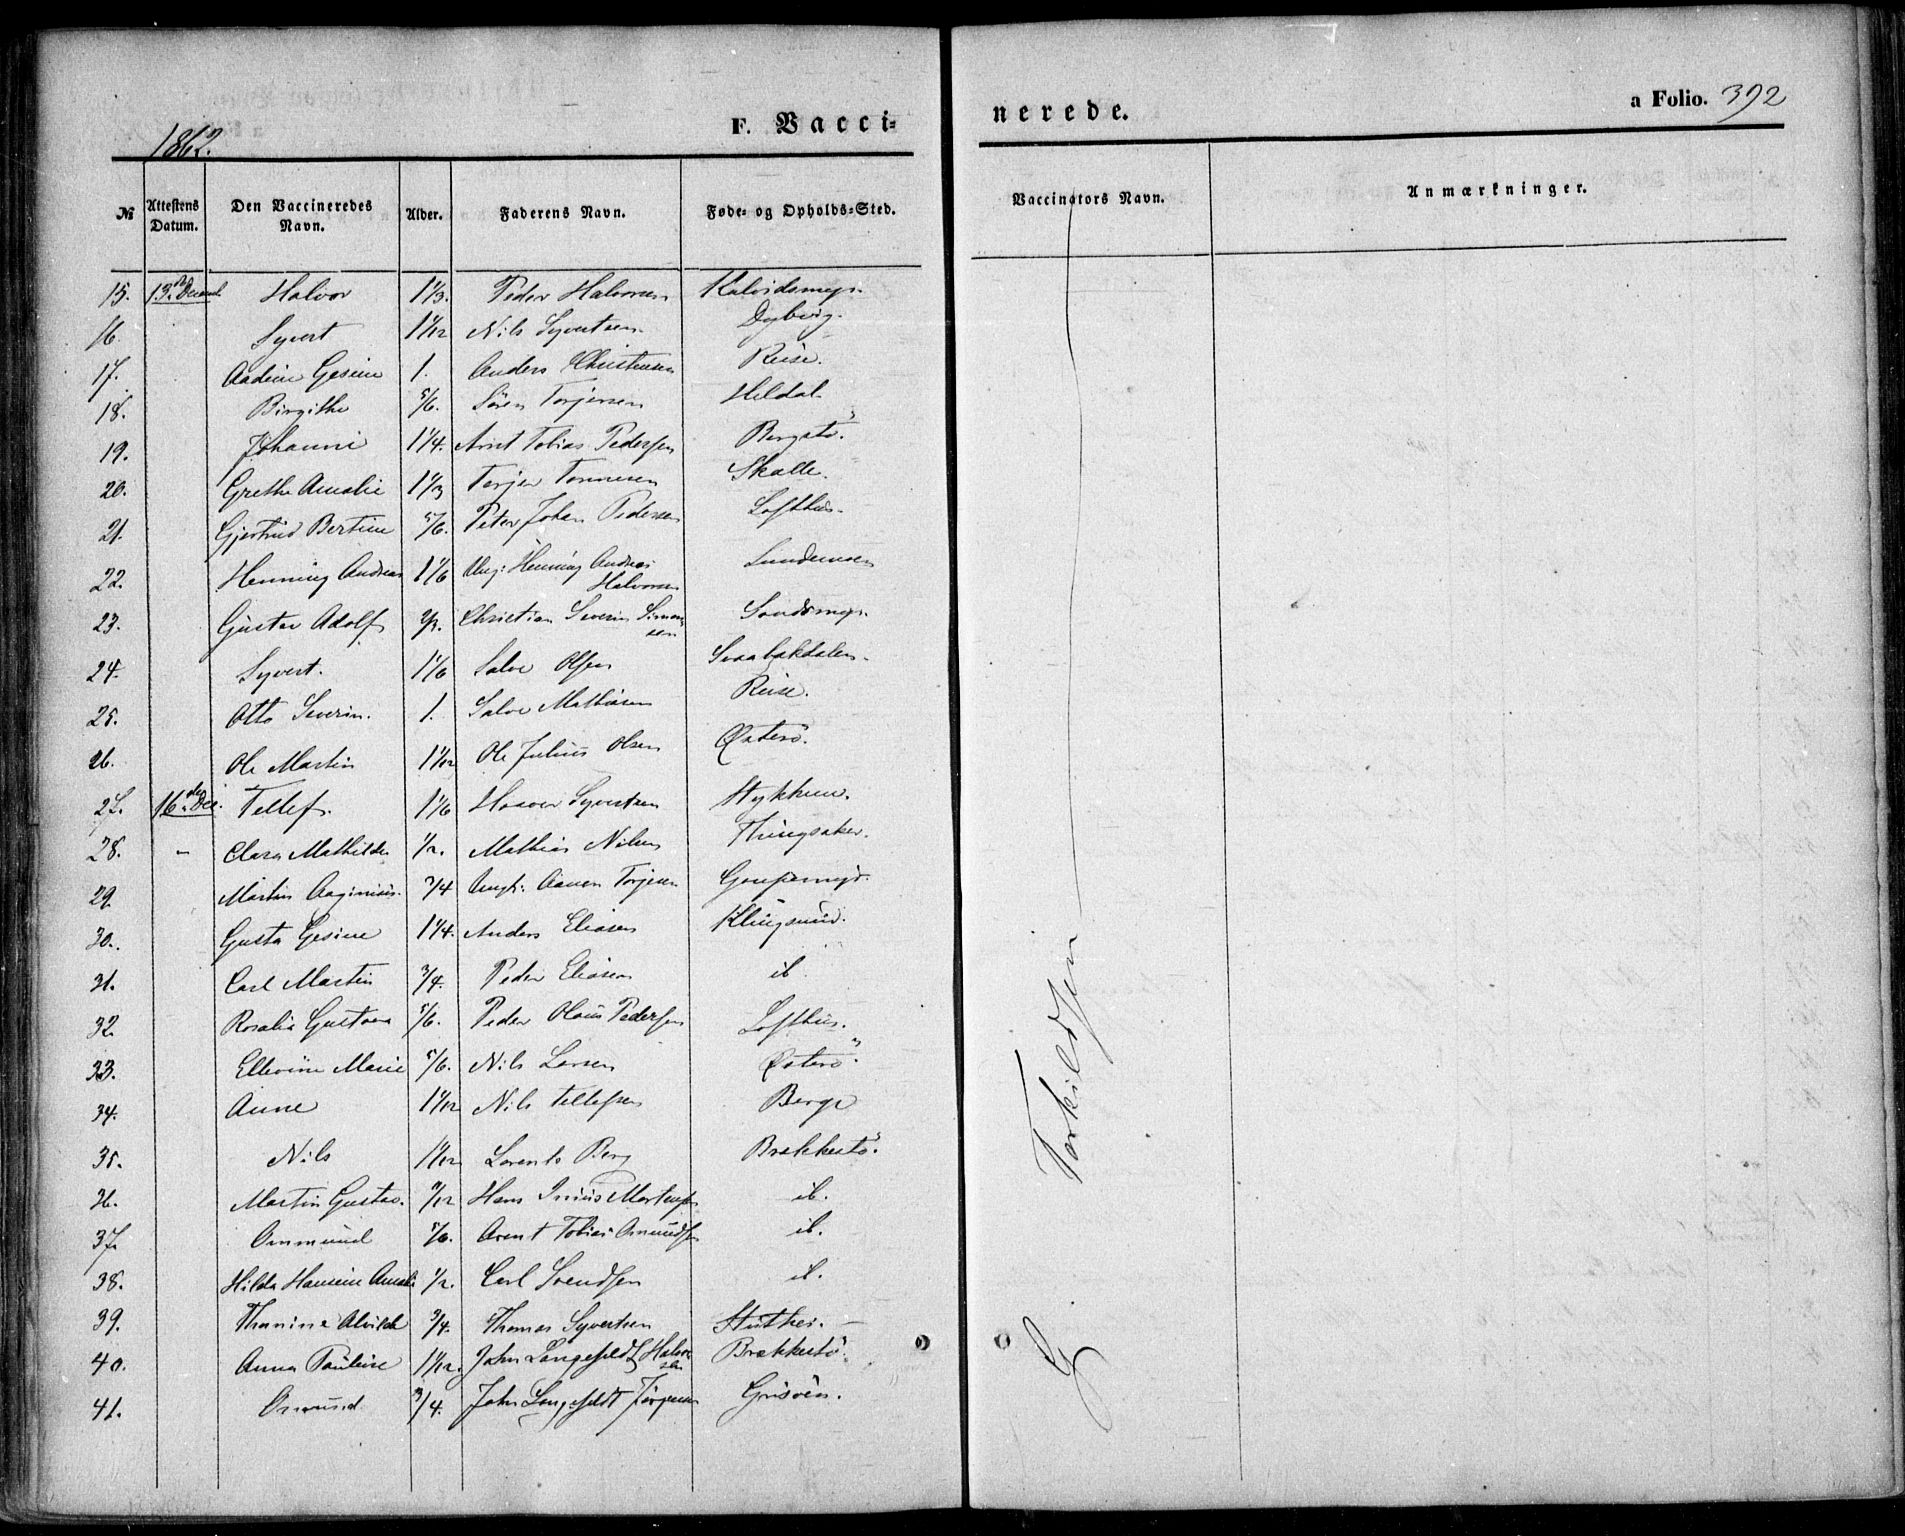 1862.
F. Vacci=
nerede.
a Folio. 392
№ Attestens Datum. Den Vaccineredes Navn. Alder. Faderens Navn. Føde= og Opholds=Sted. Vaccinators Navn. Anmærkninger.
15. 13. Halvor 1 1/3. Peder Halvorsen
16. Syvert 1 1/12 Nils Syvertsen Dybvig.
17. Gesine 1. Anders Christensen Reise.
18. Birgithe 5/6. Sören Torjersen Heldal
19. Johanne 1 1/4. Arnt Tobias Pedersen Bergstö.
20. Grethe Amalie 1 1/3 Terjer Tønnesen Skalle.
21. Gjertrud Bertine 5/6. Peter Johan Pedersen Lofthus.
22. Henning Andreas 1 1/6 Ung: Henning Andreas Halvorsen
23. Gustav Adolf Christian Severin Simonsen
24. Syvert. 1 1/6 Salve Olsen Svabakdalen.
25. Otto Severin. 1. Salve Mathiasen Reise.
26. Ole Martin 1 1/12 Ole Julius Olsen Østerö.
27. 16. Dec. Tellef. 1 1/6 Syvertsen
28. – Clara Mathilde 1/2. Mathias Nilsen Thingsaker.
29. Martin 3/4 Torjesen
30. Gusta Gesine 1 1/4. Anders Eliasen Klingsund.
31. Carl Martin 3/4. Peder Eliasen ib
32. Rosalie Gustava 5/6. Peder Olaus Pedersen Lofthus.
33. Ellevine Marie 5/6. Nils Larsen Østerö.
34. Anne 1 1/12 Nils Tellefsen Berge
35. Nils 1 1/12 Lorents Berg Brekkestö.
36. Martin Gustav. Hans Mortensen ib.
37. Ommund 5/6. Arent Tobias Omundsen ib.
38. Hilda Hansine Amalie 1/2. Carl Svendsen ib.
39. Thomine Alvilde 3/4. Thomas Syvertsen
40. Anna Pauline 1 1/12. John Langefeldt Halvorsen Brekkestö.
41. Omund. 3/4. John Langefeldt Jörgensen Grisöen.
G. Torkildsen